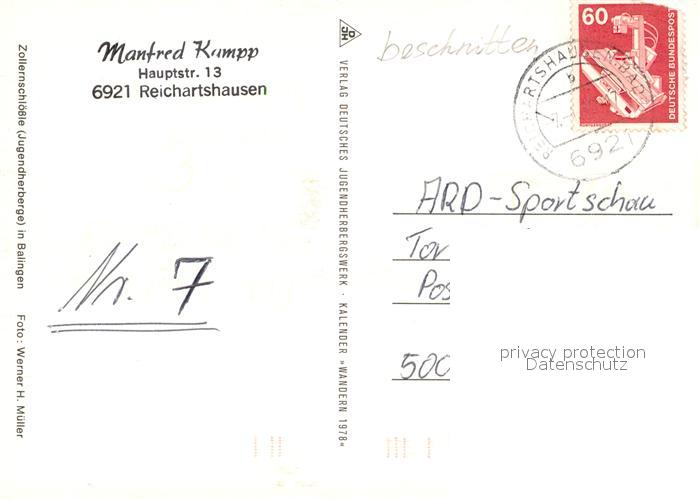 Manfred Kumpp
Hauptstr. 13
6921 Reichartshausen
Zollernschlößle (Jugendherberge) in Balingen Foto: Werner H. Müller
Nr. 7
DJH
VERLAG DEUTSCHES JUGENDHERBERGSWERK · KALENDER »WANDERN 1978«
beschnitten
REICHARTSHAUSEN
b
6921
60
DEUTSCHE BUNDESPOST
ARD-Sportschau
Tor
Pos
500
privacy protection
Datenschutz